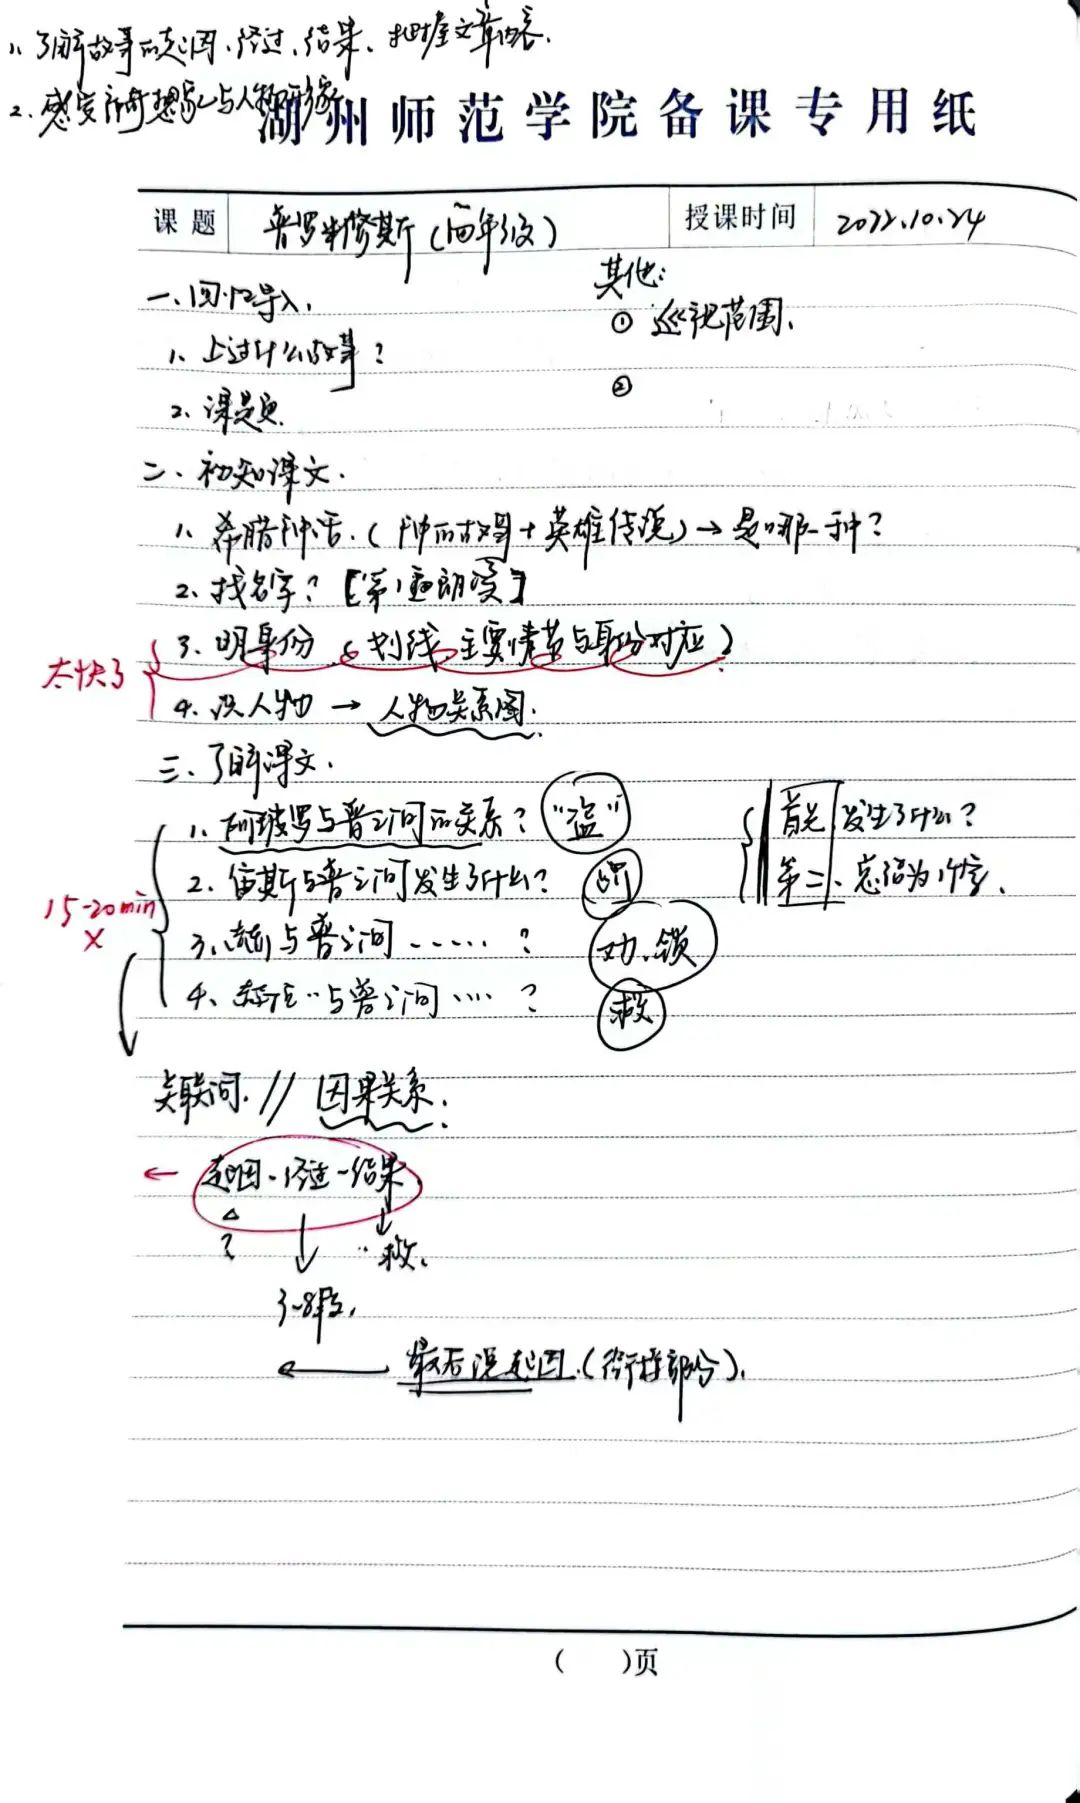 1、了解故事的起因、经过、结果、把握文章内容.
2、感受神奇想象与人物形象
湖州师范学院备课专用纸
课题 普罗米修斯(四年级) 授课时间 2022.10.24
一、回忆导入.
其他:
① 巡视范围、
1、上过什么故事?
②
2、课题页
二、初知课文.
1、希腊神话.(神的故事+英雄传说)→是哪一种?
2、找名字?【第1遍朗读】
3、明身份(划线,主要情节与身份对应)
太快了
4、识人物→人物关系图.
三、了解课文.
1、阿波罗与普之间的关系? "盗"
首先 发生了什么?
2、宙斯与普之间发生了什么? 罚
第二、总结为1个字、
15-20min
×
3、与普之间……? 劝、锁
4、与普之间…? 救
关联词.// 因果关系.
← 起因-经过-结果
?
救.
3-8段.
← 最后说起因.(衔接部分).
( )页